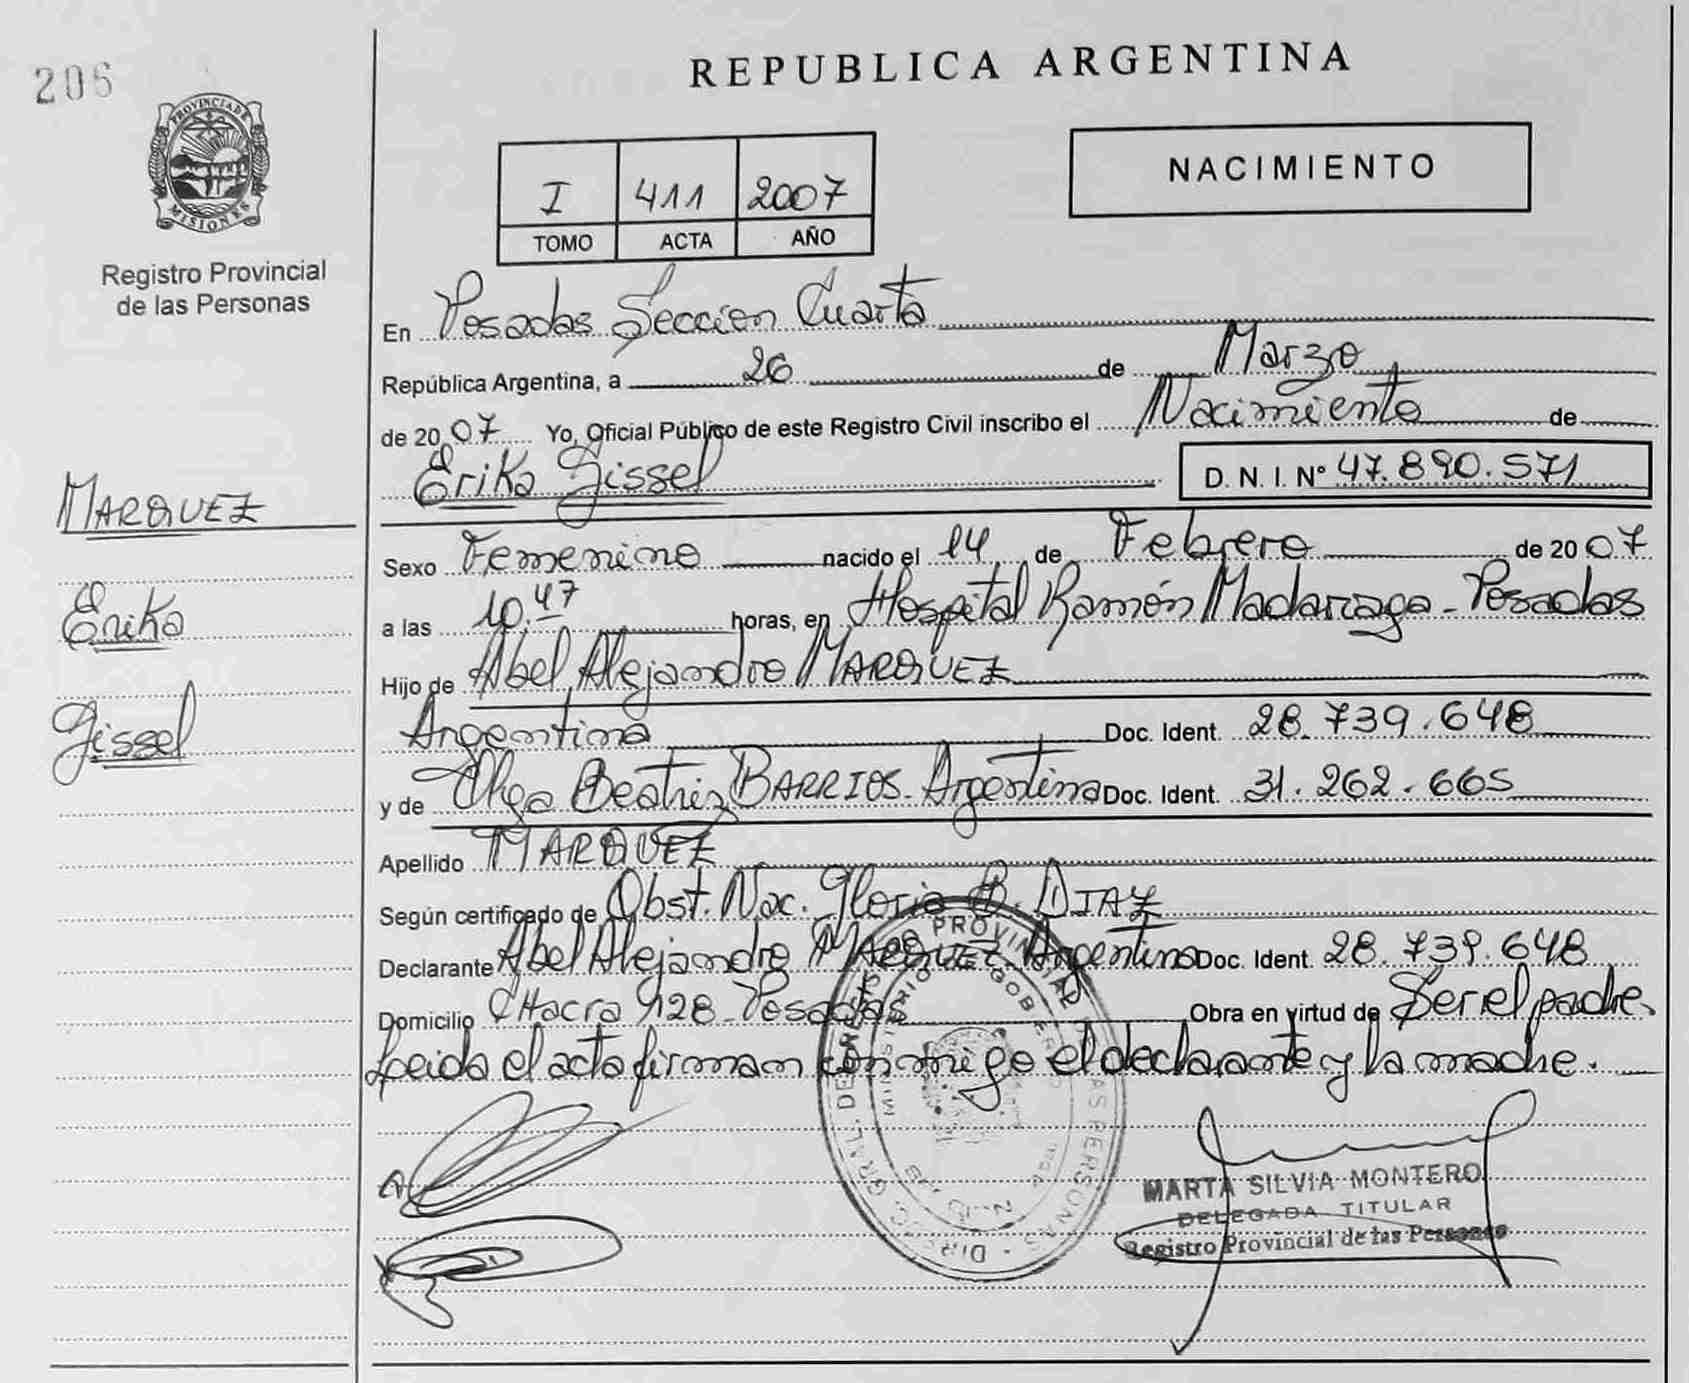 206
REPUBLICA ARGENTINA
PROVINCIA DE
MISIONES
Registro Provincial
de las Personas
I 411 2007
TOMO ACTA AÑO
NACIMIENTO
En Posadas Seccion Cuarta
República Argentina, a 26 de Marzo
de 2007 Yo, Oficial Público de este Registro Civil inscribo el Nacimiento de
Erika Gissel D. N. I. N° 47.890.571
MARQUEZ
Erika
Gissel
Sexo Femenino nacido el 14 de Febrero de 2007
a las 10.47 horas, en Hospital Ramón Madariaga - Posadas
Hijo de Abel Alejandro MARQUEZ
Argentina Doc. Ident. 28.739.648
y de Olga Beatriz BARRIOS - Argentina Doc. Ident. 31.262.665
Apellido MARQUEZ
Según certificado de Obst. Nac. Gloria B. DIAZ
Declarante Abel Alejandro MARQUEZ - Argentino Doc. Ident. 28.739.648
Domicilio CHacra 128 - Posadas Obra en virtud de Ser el padre
Leida el acta firman conmigo el declarante y la madre.
MARTA SILVIA MONTERO
DELEGADA TITULAR
Registro Provincial de las Personas